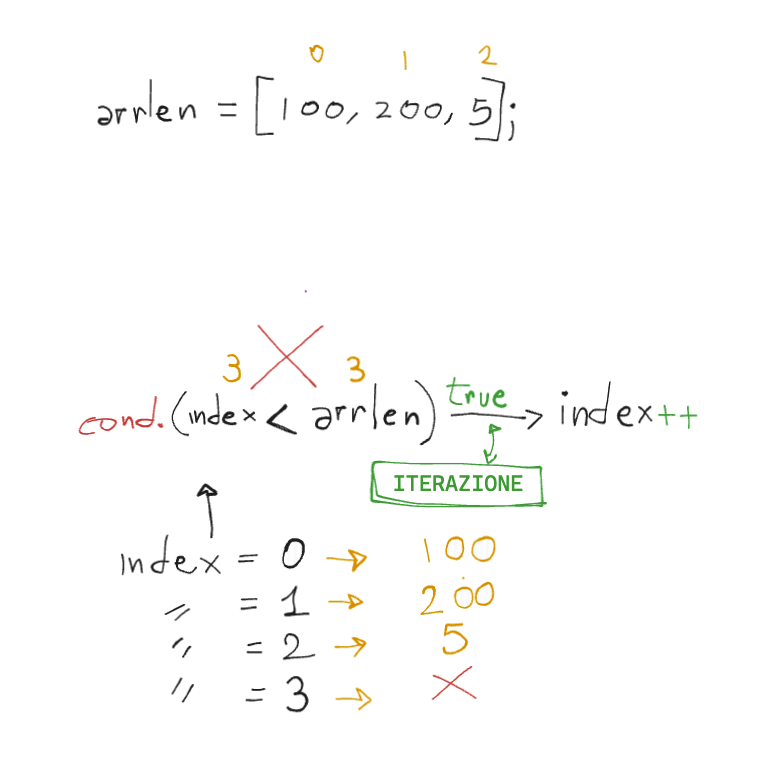 0 1 2
arrlen = [100, 200, 5];
3 3
cond. (index < arrlen) true → index++
ITERAZIONE
index = 0 → 100
〃 = 1 → 200
〃 = 2 → 5
〃 = 3 → ×